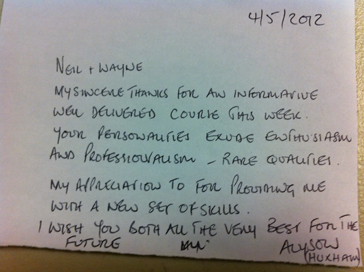 4/5/2012
NEIL + WAYNE
MY SINCERE THANKS FOR AN INFORMATIVE
WELL DELIVERED COURSE THIS WEEK.
YOUR PERSONALITIES EXUDE ENTHUSIASM
AND PROFESSIONALISM - RARE QUALITIES.
MY APPRECIATION TO FOR PROVIDING ME
WITH A NEW SET OF SKILLS.
I WISH YOU BOTH ALL THE VERY BEST FOR THE
FUTURE ALYSON
(HUXHAM)